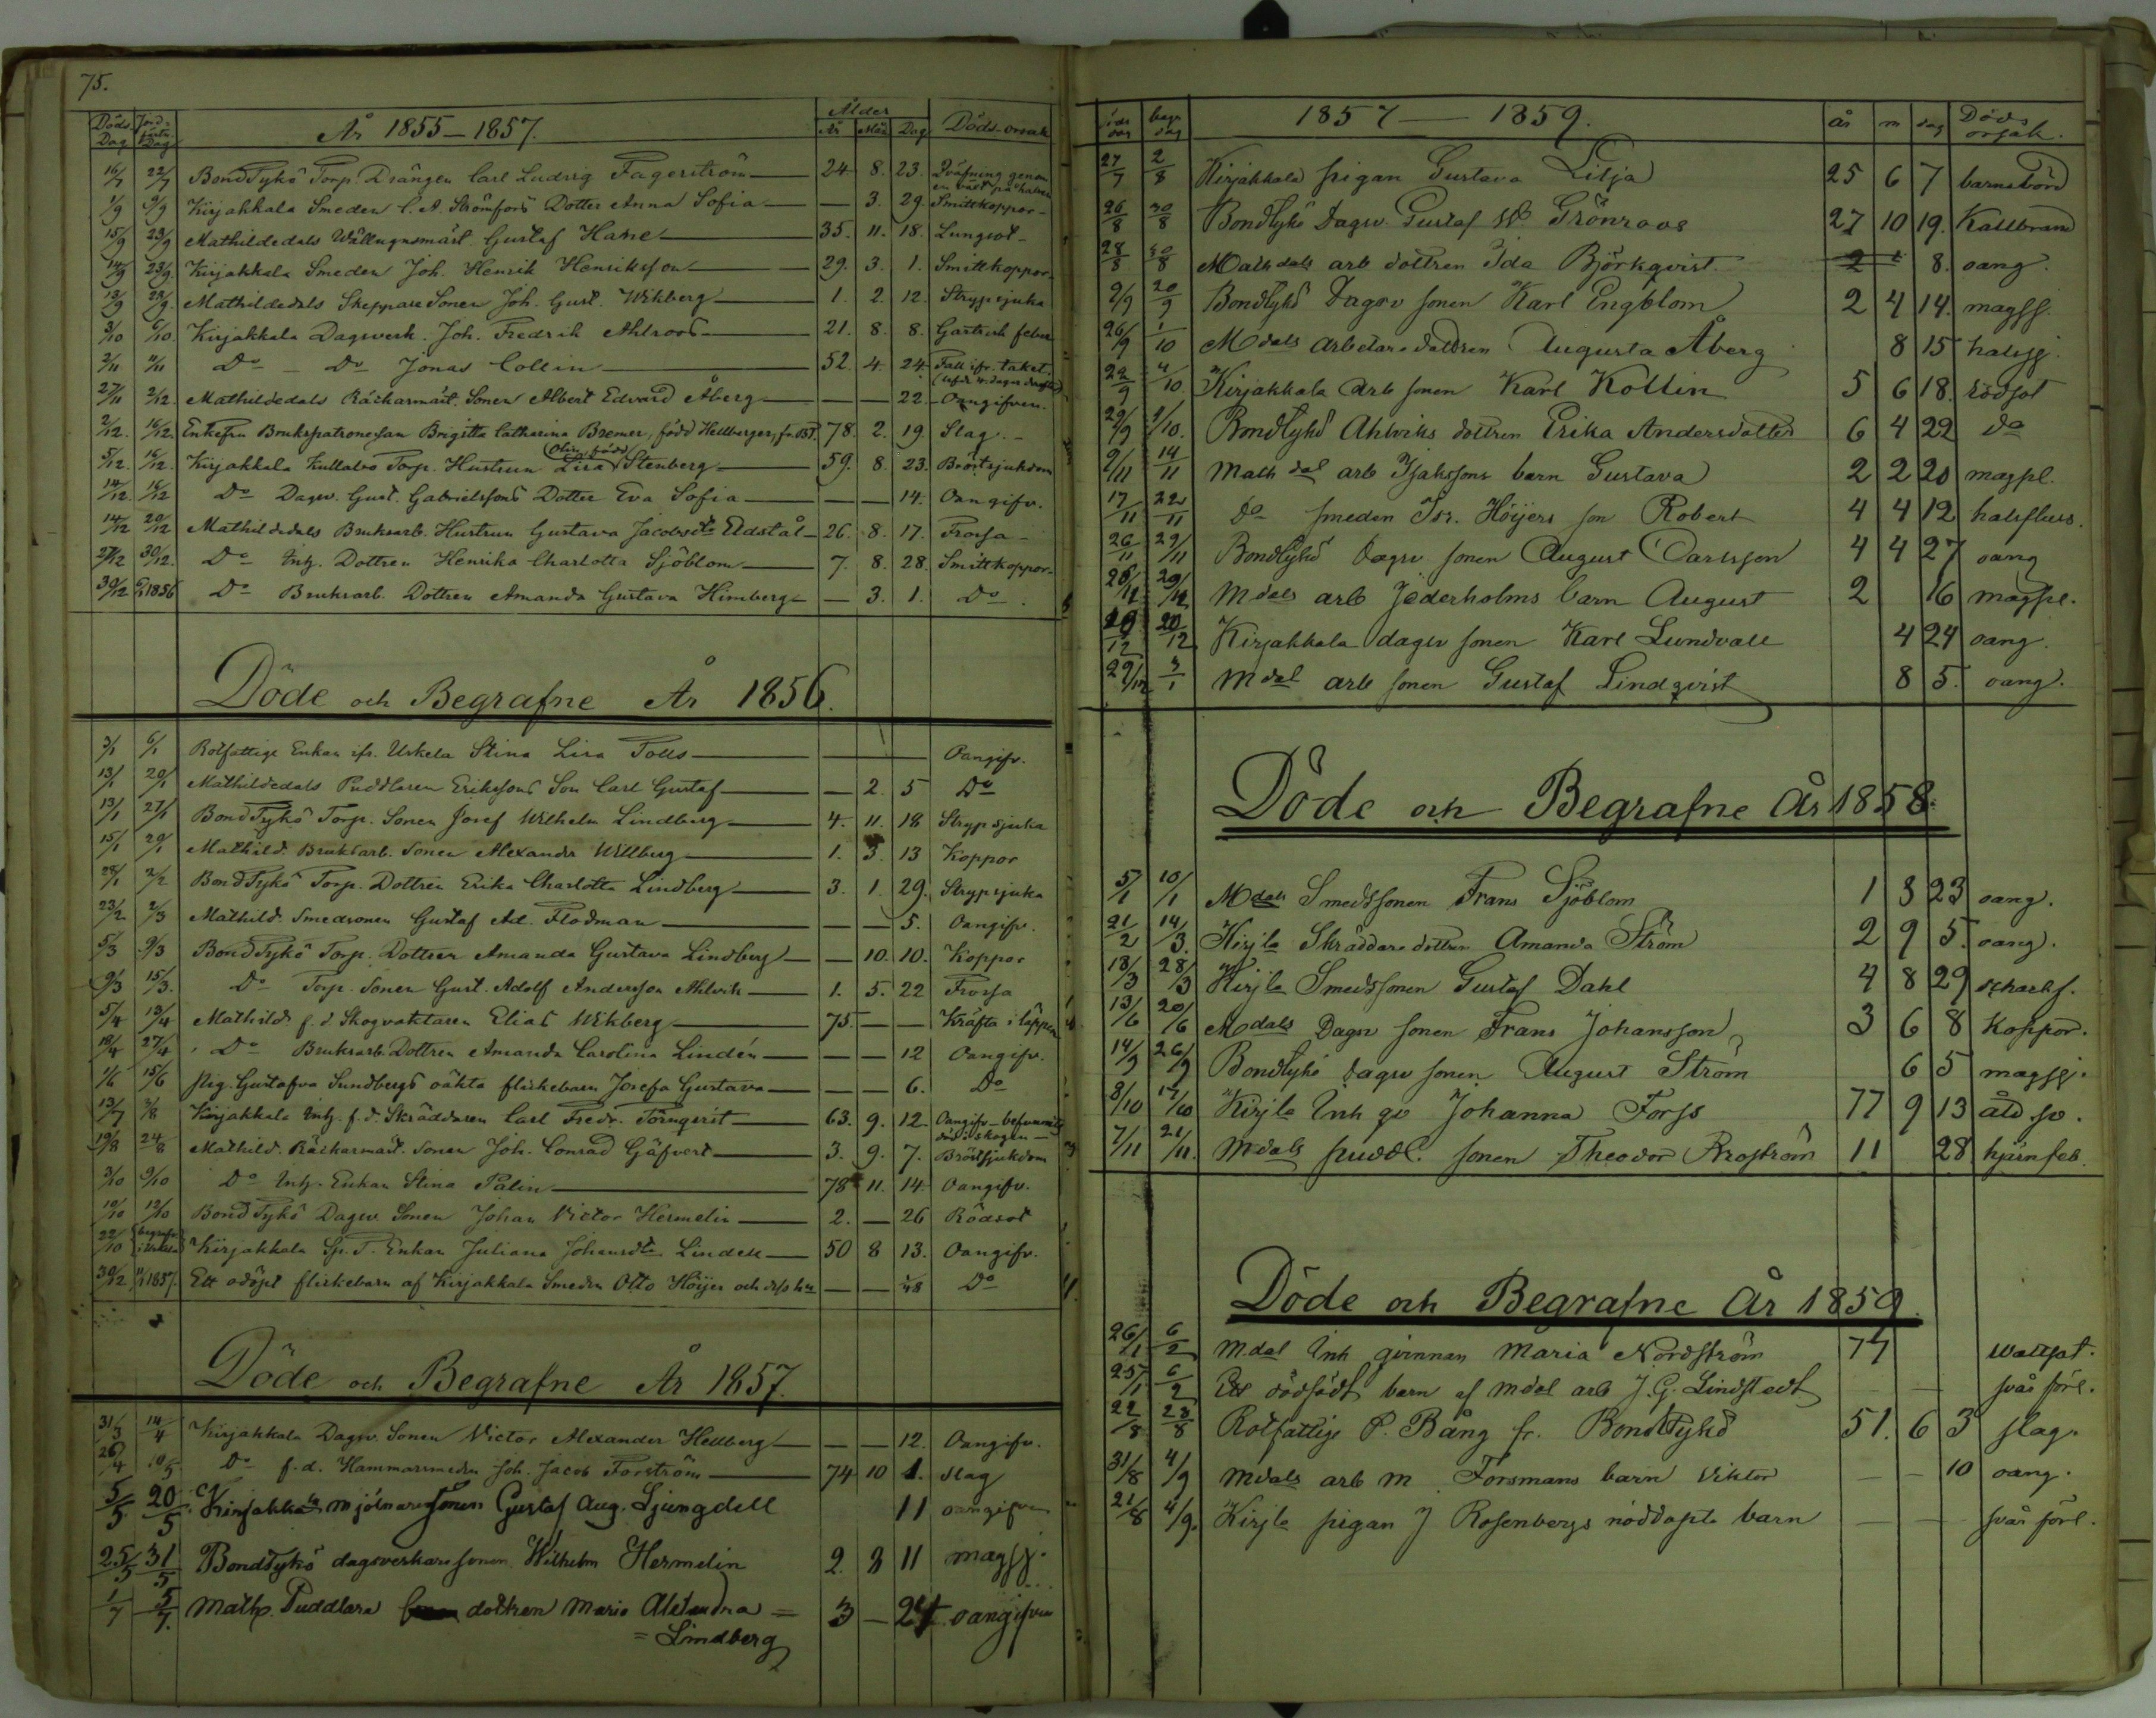 75.
Döds Dag Jord-fästn. Dag År 1855–1857. Ålder År Mån Dag Döds-orsak
16/7 22/7 BondTykö Torp. Drängen Carl Ludvig Fagerström — 24 8. 23. Qväfning genom
en vält på halsen
1/9 9/9 Kirjakkala Smeden C. A. Strömfors Dotter Anna Sofia — — 3. 29. Smittkoppor –
15/9 23/9 Mathildedals Wällugnsmäst. Gustaf Hane — 35. 11. 18. Lungsot –
14/9 23/9. Kirjakkala Smeden Joh. Henrik Henriksson — 29. 3. 1. Smittkoppor
19/9 23/9. Mathildedals Skeppare Sonen Joh. Gust. Wikberg — 1. 2. 12. Strypsjuka
3/10 6/10. Kirjakkala Dagsverk. Joh. Fredrik Ahlroos — 21. 8. 8. Gastrisk feber
2/11 11/11 Do – Do Jonas Collin — 52. 4. 24. Fall ifr. taket.
27/11 2/12. Mathildedals Räckarmäst. Sonen Albert Edvard Åberg — — — 22. – Oangifven.
2/12. 16/12. Enkefru Brukspatronessan Brigitta Catharina Bremer, född Hellberger, fr. Åbo. 78. 2. 19. Slag. –
5/12. 16/12. Kirjakkala Kullabro Torp. Hustrun Lisa Stenberg — 59. 8. 23. Bröstsjukdom
14/12. 16/12 Do Dagsv. Gust. Gabrielssons Dotter Eva Sofia — — — 14. Oangifv.
14/12 20/12 Mathildedals Bruksarb. Hustrun Gustava Jacobsdtr Eldstål – 26. 8. 17. Frossa –
27/12 30/12. Do Inh. Dottren Henrika Charlotta Sjöblom — 7. 8. 28. Smittkoppor –
30/12 6/1 1856 Do Bruksarb. Dottren Amanda Gustava Himberg – — 3. 1. Do.
Döde och Begrafne År 1856.
3/1 6/1 Rotfattige Enkan ifr. Uskela Stina Lisa Tolls — Oangifv.
13/1 20/1 Mathildedals Puddlaren Erikssons Son Carl Gustaf — — 2. 5 Do
13/1 27/1 BondTykö Torp. Sonen Josef Wilhelm Lindberg — 4. 11. 18 Strypsjuka
15/1 20/1 Mathild. Bruksarb. Sonen Alexander Willberg — 1. 3. 13 Koppor
28/1 2/2 BondTykö Torp. Dottren Erika Charlotta Lindberg — 3. 1. 29. Strypsjuka
23/2 2/3 Mathild. Smedsonen Gustaf Ad. Flodman — — — 5. Oangifv.
5/3 9/3 BondTykö Torp. Dottren Amanda Gustava Lindberg — — 10. 10. Koppor
9/3 15/3. Do Torp. Sonen Gust. Adolf Andersson Ahlvik — 1. 5. 22 Frossa
5/4 13/4 Mathild. f. d. Skogvaktaren Elias Wikberg — 75. — — Kräfta i läppen
18/4 27/4 Do Bruksarb. Dottren Amanda Carolina Lindén — — — 12 Oangifv.
1/6 15/6 Pig. Gustafva Sundbergs oäkta flickebarn Josefa Gustava — — — 6. Do
13/7 3/8 Kirjakkala Inh. f. d. Skräddaren Carl Fredr. Törnqvist — 63. 9. 12. Oangifv. – befunnits
död i skogen –
19/8 24/8 Mathild. Räckarmäst. Sonen Joh. Conrad Gäfvert — 3. 9. 7. Bröstsjukdom
3/10 9/10 Do Inh. Enkan Stina Palin — 78 11. 14. Oangifv.
10/10 12/10 BondTykö Dagsv. Sonen Johan Victor Hermelin — 2. — 26 Rödsot
22/10 begrafv. i Uskela Kirjakkala Sp. T. Enkan Juliana Johansdtr Lindell — 50 8 13. Oangifv.
30/12 11/1 1857. Ett odöpt flickebarn af Kirjakkala Smeden Otto Höijer och dess hu — — — 1/48 Do
Döde och Begrafne År 1857.
31/3 14/4 Kirjakkala Dagsv. Sonen Victor Alexander Hellberg — — — 12. Oangifv.
26/4 10/5 Do f. d. Hammarsmeden Joh. Jacob Forström — 74 10 1. Slag
5/5. 20/5 Kirjakkala mjölnaresonen Gustaf Aug. Ljungdell 11 oangifven
25/5 31/5 BondTykö dagsverkaresonen Wilhelm Hermelin 2. 8 11 magsj.
1/7 5/7. Math. Puddlare dottren Maria Alexandra = 3 – 24. oangifven
= Lindberg
döds dag begr dag 1857 — 1859. år m dag Döds orsak.
27/7 2/8 Kirjakkala pigan Gustava Lilja 25 6 7 barnsbörd
26/8 30/8 Bondtykö Dagsv. Gustaf W. Grönroos 27 10 19. Kallbrand
28/8 30/8 Mathdals arb dottren Ida Björkqvist. 8. oang.
9/9 20/9 Bondtykö Dagsv sonen Karl Engblom 2 4 14. magsj.
26/9 1/10 Mdals arbetaredottren Augusta Åberg 8 15 halssj.
22/9 4/10. Kirjakkala arb sonen Karl Kollin 5 6 18. rödsot
29/9 9/10. Bondtykö Ahlviks dottren Erika Andersdotter 6 4 22 do
9/11 14/11 Mathdal arb Isakssons barn Gustava 2 2 20 magpl.
17/11 22/11 do smeden Isr. Höijers son Robert 4 4 12 halsfluss.
26/11 29/11 Bondtykö dagsv sonen August Carlsson 4 4 27 oang
28/12 29/12 Mdals arb Jederholms barn August 2 16 magpl.
20/12 Kirjakkala dagsv sonen Karl Lundvall 4 24 oang.
29/12 3/1 Mdal arb sonen Gustaf Lindqvist 8 5. oang.
Döde och Begrafne År 1858.
5/1 10/1 Mdals Smedssonen Frans Sjöblom 1 3 23 oang.
21/2 14/3. Kirjla Skräddaredottren Amanda Ström 2 9 5. oang.
18/3 28/3 Kirjla Smedssonen Gustaf Dahl 4 8 29 scharlf.
13/6 20/6 Mdals Dagsv sonen Frans Johansson 3 6 8 Koppor.
14/9 26/9 Bondtykö dagsv sonen August Ström 6 5 magsj.
8/10 17/10 Kirjla Inh qv Johanna Forss 77 9 13 åld sv.
7/11 21/11. Mdals puddl. sonen Theodor Broström 11 28 hjärnfeb.
Döde och Begrafne År 1859.
26/1 6/2 Mdal Inh qvinnan Maria Nordström 74 wattsot.
25/1 6/2 Ett dödfödt barn af Mdal arb J. G. Lindstedt — — svår förl.
22/8 23/8 Rotfattige P. Bång fr. BondtTykö 51. 6 3 slag.
31/8 4/9 Mdals arb M. Forsmans barn Viktor — — 10 oang.
21/8 4/9. Kirjla pigan J Rosenbergs nöddöpta barn — — svår förl.